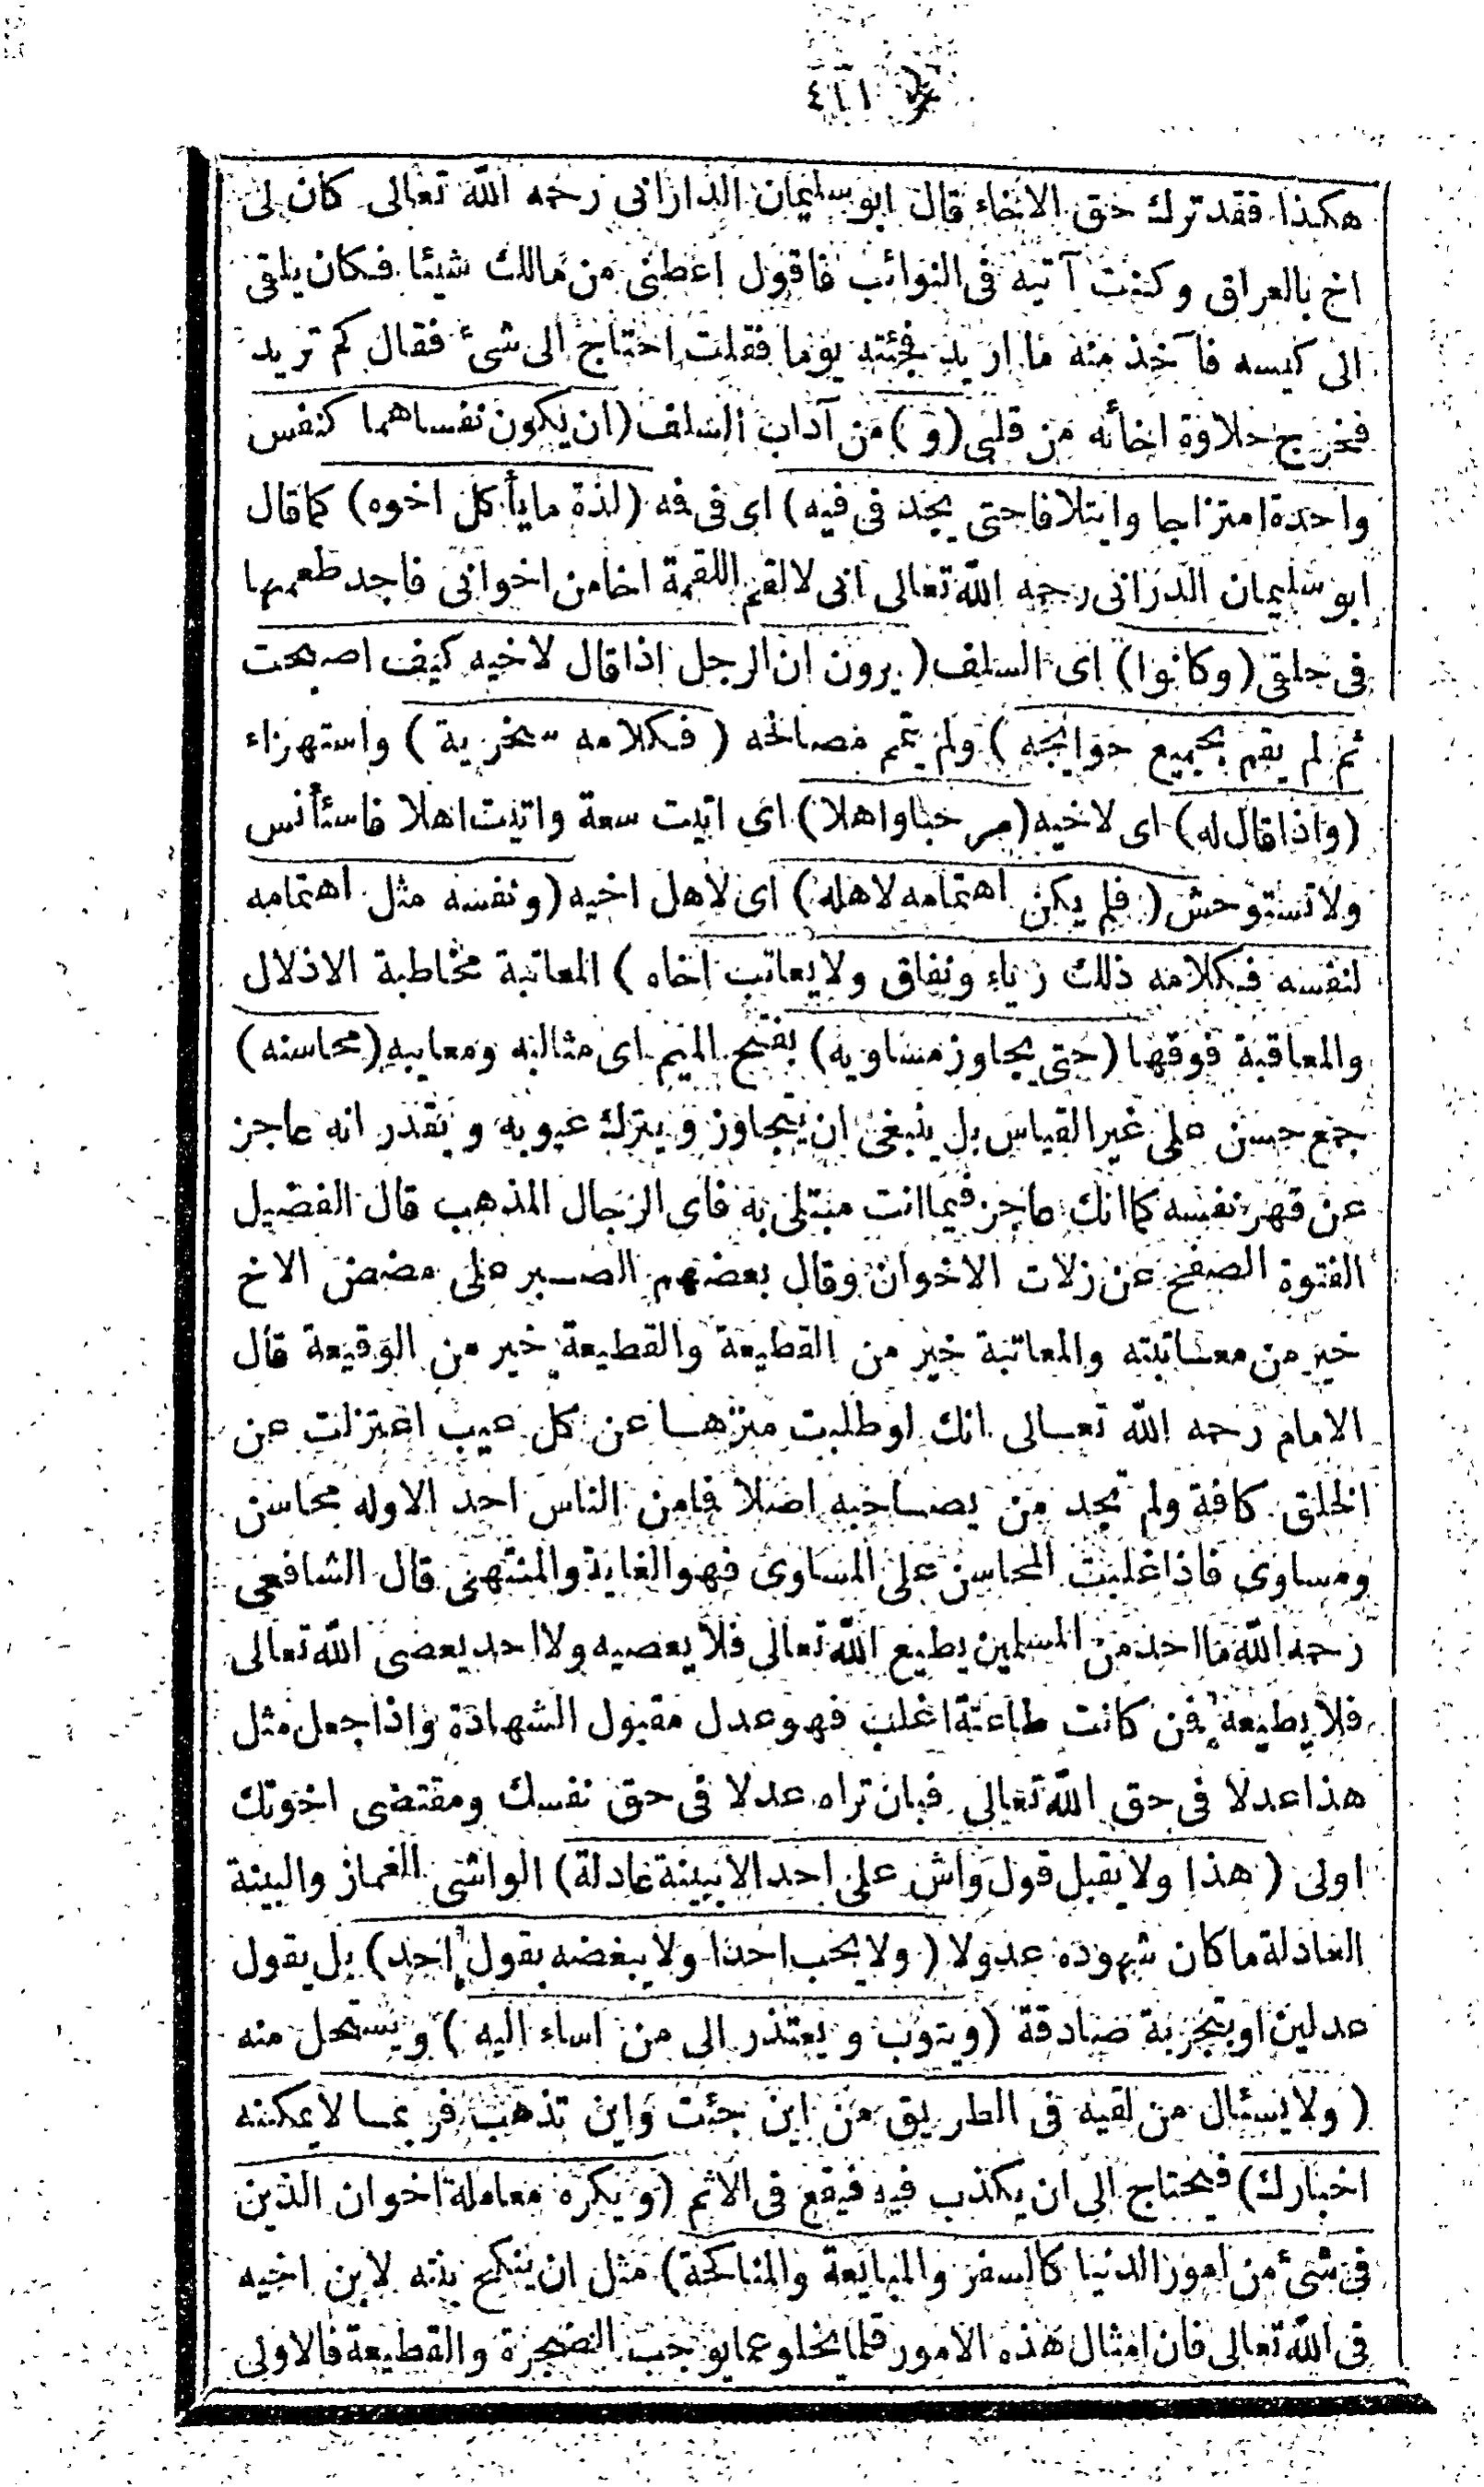 هكذا فقد ترك حق الاخاء قال ابو سليمان الدارانى رحمه الله تعالى كان لى
اخ بالعراق وكنت آتيه فى النوائب فاقول اعطنى من مالك شيئا فكان يلقى
الى كيسه فآخذ منه ما اريد فجئته يوما فقلت احتاج الى شئ فقال كم تريد
فخرج حلاوة اخائه من قلبى (و) من آداب السلف (ان يكون نفساهما كنفس
واحدة امتزاجا وايتلافا حتى يجد فى فيه) اى فى فمه (لذة ما يأكل اخوه) كما قال
ابو سليمان الدرانى رحمه الله تعالى انى لالقم اللقمة اخا من اخوانى فاجد طعمها
فى حلقى (وكانوا) اى السلف (يرون ان الرجل اذا قال لاخيه كيف اصبحت
ثم لم يقم بجميع حوايجه) ولم يتم مصالحه (فكلامه سخرية) واستهزاء
(واذا قال له) اى لاخيه (مرحبا واهلا) اى اتيت سعة واتيت اهلا فاستأنس
ولا تستوحش (فلم يكن اهتمامه لاهله) اى لاهل اخيه (ونفسه مثل اهتمامه
لنفسه فكلامه ذلك رياء ونفاق ولا يعاتب اخاه) المعاتبة مخاطبة الاذلال
والمعاقبة فوقها (حتى يجاوز مساويه) بفتح الميم اى مثالبه ومعايبه (محاسنه)
جمع حسن على غير القياس بل ينبغى ان يتجاوز ويترك عيوبه ويقدر انه عاجز
عن قهر نفسه كما انك عاجز فيما انت مبتلى به فاى الرجال المذهب قال الفضيل
الفتوة الصفح عن زلات الاخوان وقال بعضهم الصبر على مضض الاخ
خير من معاتبته والمعاتبة خير من القطيعة والقطيعة خير من الوقيعة قال
الامام رحمه الله تعالى انك لو طلبت منزها عن كل عيب اعتزلت عن
الخلق كافة ولم تجد من يصاحبه اصلا فما من الناس احد الا وله محاسن
ومساوى فاذا غلبت المحاسن على المساوى فهو الغاية والمنتهى قال الشافعى
رحمه الله ما احد من المسلمين يطيع الله تعالى فلا يعصيه ولا احد يعصى الله تعالى
فلا يطيعه فمن كانت طاعته اغلب فهو عدل مقبول الشهادة واذا جعل مثل
هذا عدلا فى حق الله تعالى فبان تراه عدلا فى حق نفسك ومقتضى اخوتك
اولى (هذا ولا يقبل قول واش على احد الا ببينة عادلة) الواشى الغماز والبينة
العادلة ما كان شهوده عدولا (ولا يحب احدا ولا يبغضه بقول احد) بل يقول
عدلين او بتجربة صادقة (ويتوب ويعتذر الى من اساء اليه) ويستحل منه
(ولا يسئال من لقيه فى الطريق من اين جئت واين تذهب فربما لا يمكنه
اخبارك) فيحتاج الى ان يكذب فيه فيقع فى الاثم (ويكره معاملة اخوان الذين
فى شئ من امور الدنيا كالسفر والمبايعة والمناكحة) مثل ان ينكح بنته لابن اخيه
فى الله تعالى فان امثال هذه الامور قلما يخلو عما يوجب الضجرة والقطيعة فالاولى